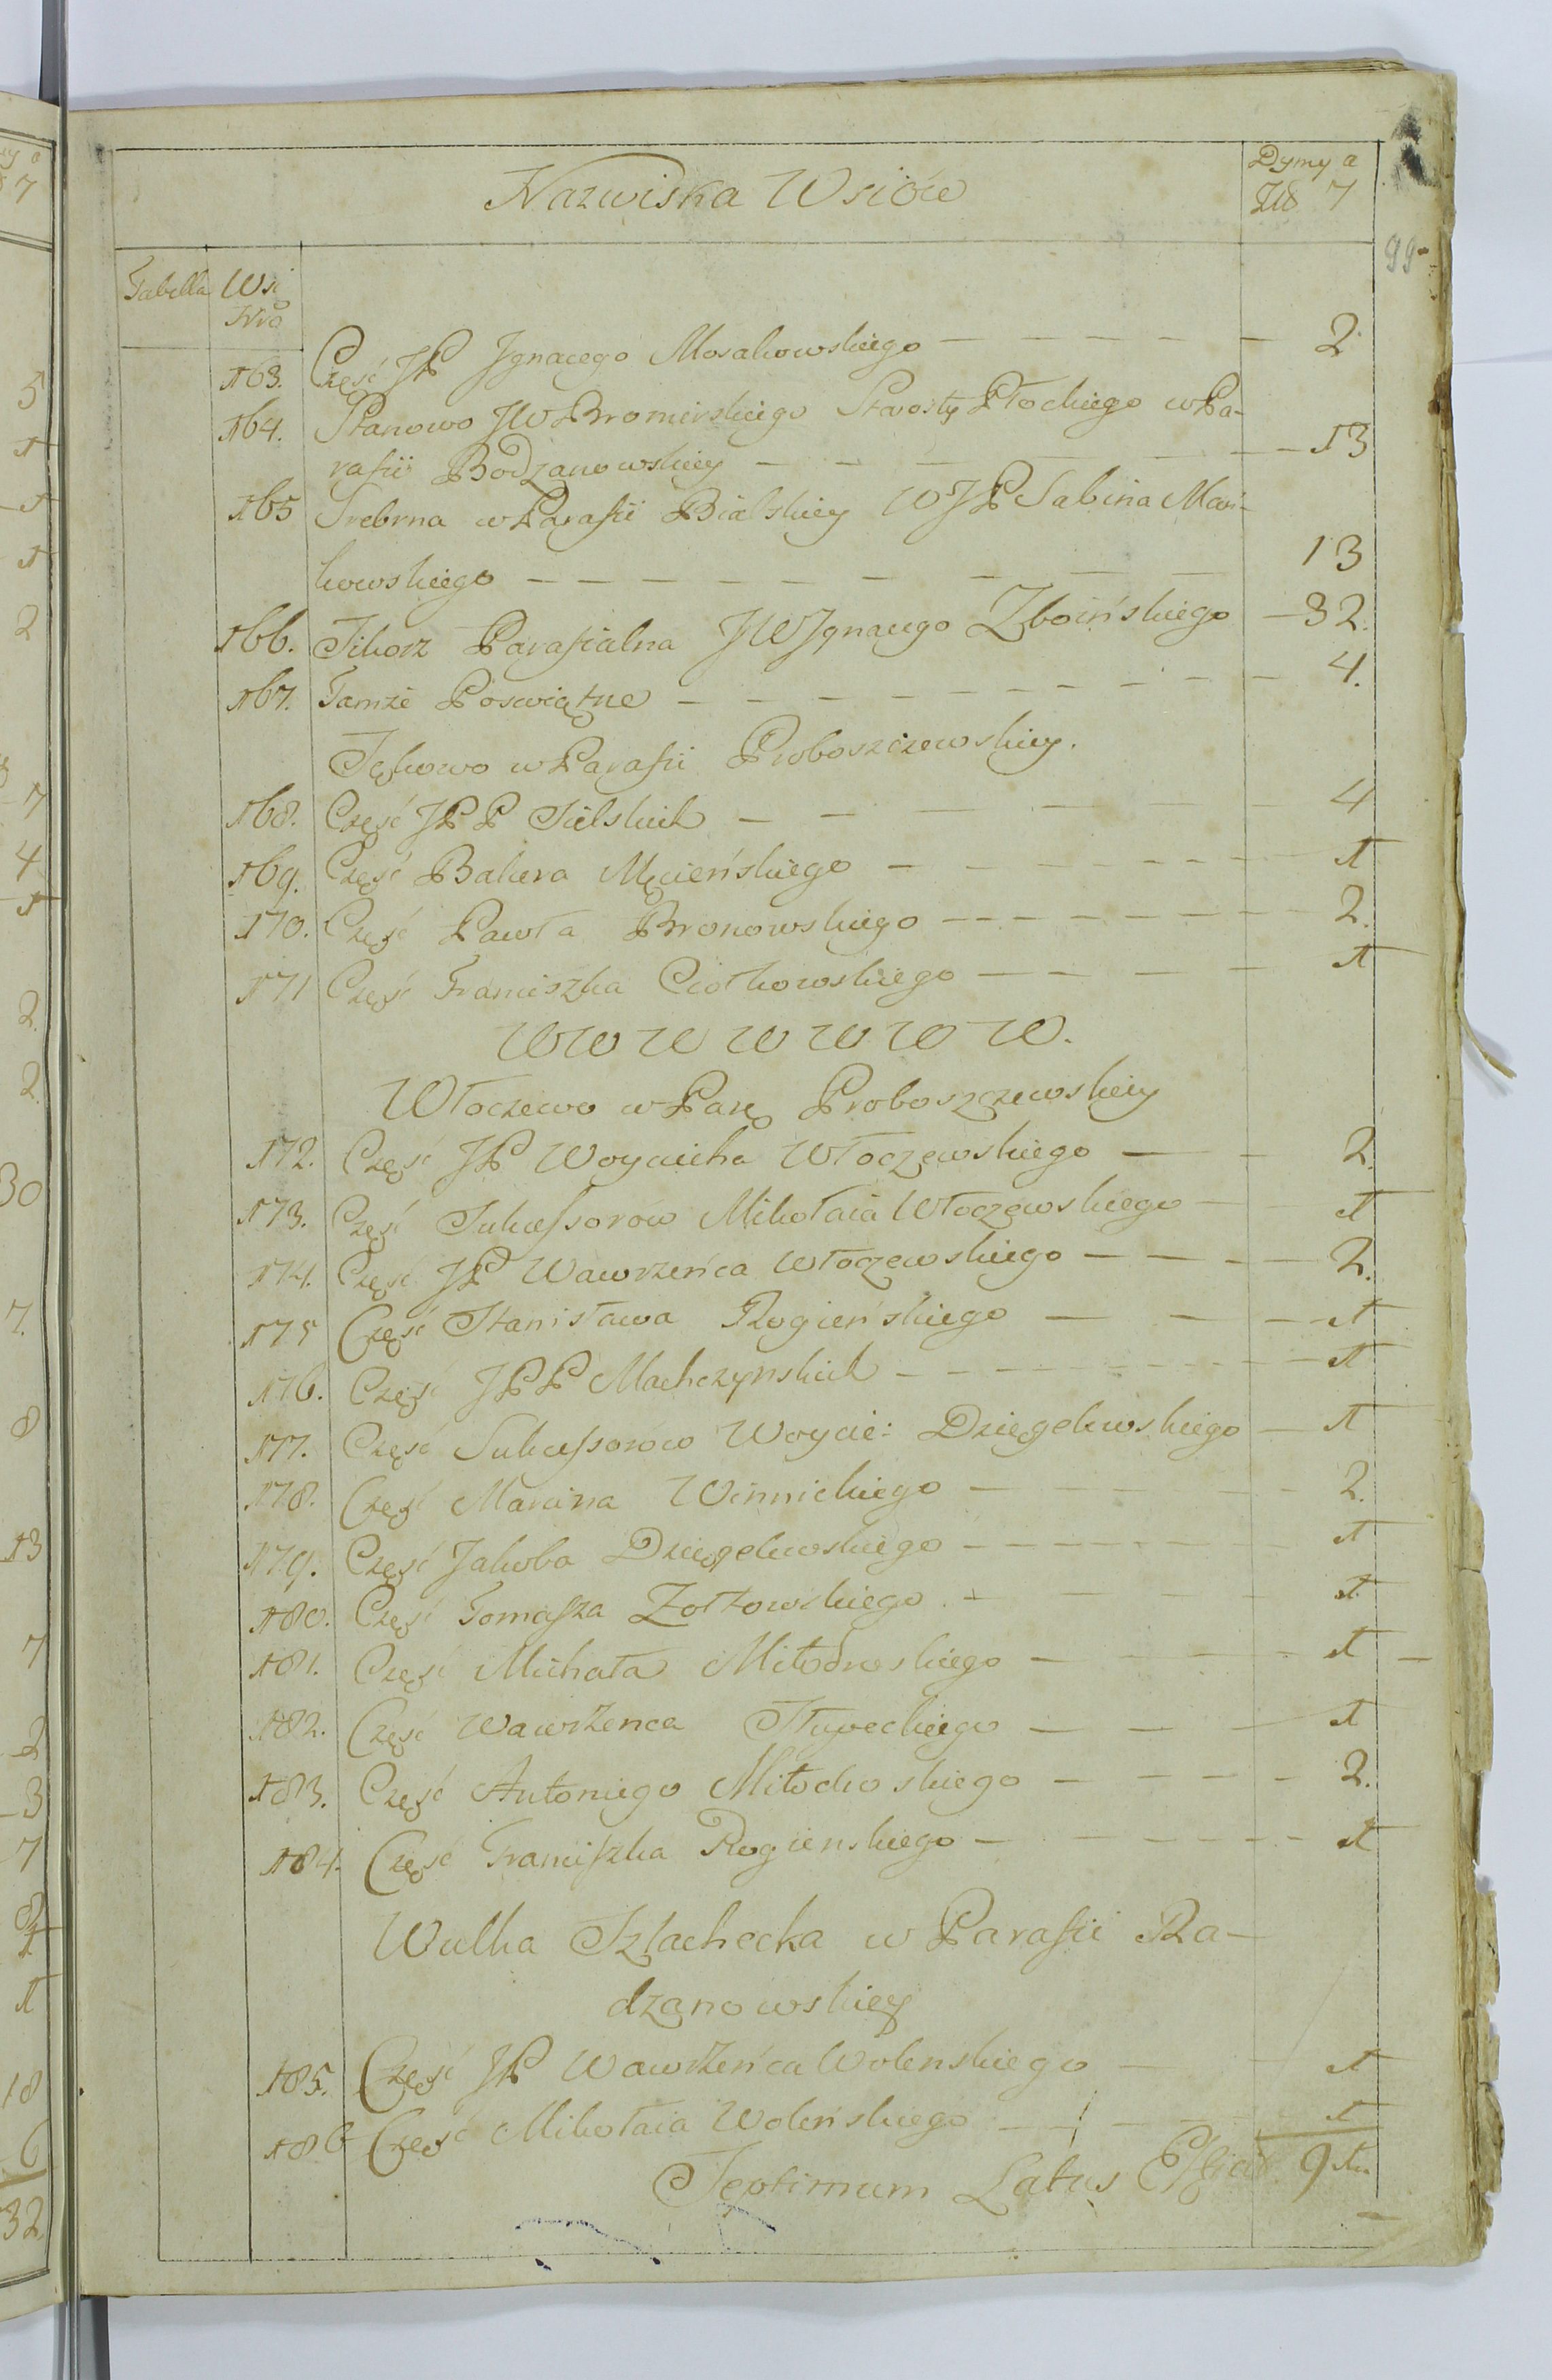 Nazwiska Wsiów
Dymy a
Zł8 7
99
Tabella Wsi
Nro
163. Część JP Jgnacego Mosakowskiego — — — — — 2
164. Stanowo JW Bromirskiego Starosty Płockiego w Pa-
rafii Bodzanowskiey — — — — — 13
165 Srebrna w Parafii Bialskiey WJP Sabina Mań-
kowskiego — — — — — — — 13
166. Sikorz Parafialna JW Jgnacego Zboińskiego — 32.
167. Tamże Poswiątne — — — — — — — 4.
Sękowo w Parafii Proboszczewskiey.
168. Część JPP Sielskich — — — — 4
169. Część Balcera Męcieńskiego — — — — — 1
170. Część Pawła Bronowskiego — — — — — 2.
171 Część Franciszka Ciołkowskiego — — — — 1
W W W W W W W.
Włoczewo w Parę Proboszczewskiey
172. Część JP Woyciecha Włoczewskiego — — 2.
173. Część Sukcessorow Mikołaia Włoczewskiego — 1
174. Część JP Wawrzeńca Włoczewskiego — — — 2.
175 Część Stanisława Rogieńskiego — — — 1
176. Część JPP Machczynskich — — — — — 1
177. Część Sukcessorow Woycie: Dzięgelewskiego — 1
178. Część Marcina Winnickiego — — — — 2.
179. Część Jakoba Dzięgelewskiego — — — — — 1
180. Część Tomasza Zołtowskiego — — — 1
181. Część Michała Miłodrowskiego — — — — 1
182. Część Wawrzenca Słupeckiego — — — 1
183. Część Antoniego Miłochowskiego — — — — 2.
184. Część Franciszka Rogienskiego — — — — 1
Wulka Szlachecka w Parafii Ra-
dzanowskiey
185. Część JP Wawrzeńca Wolenskiego — 1
186 Część Mikołaia Woleńskiego — — 1
Septimum Latus Efficit 91